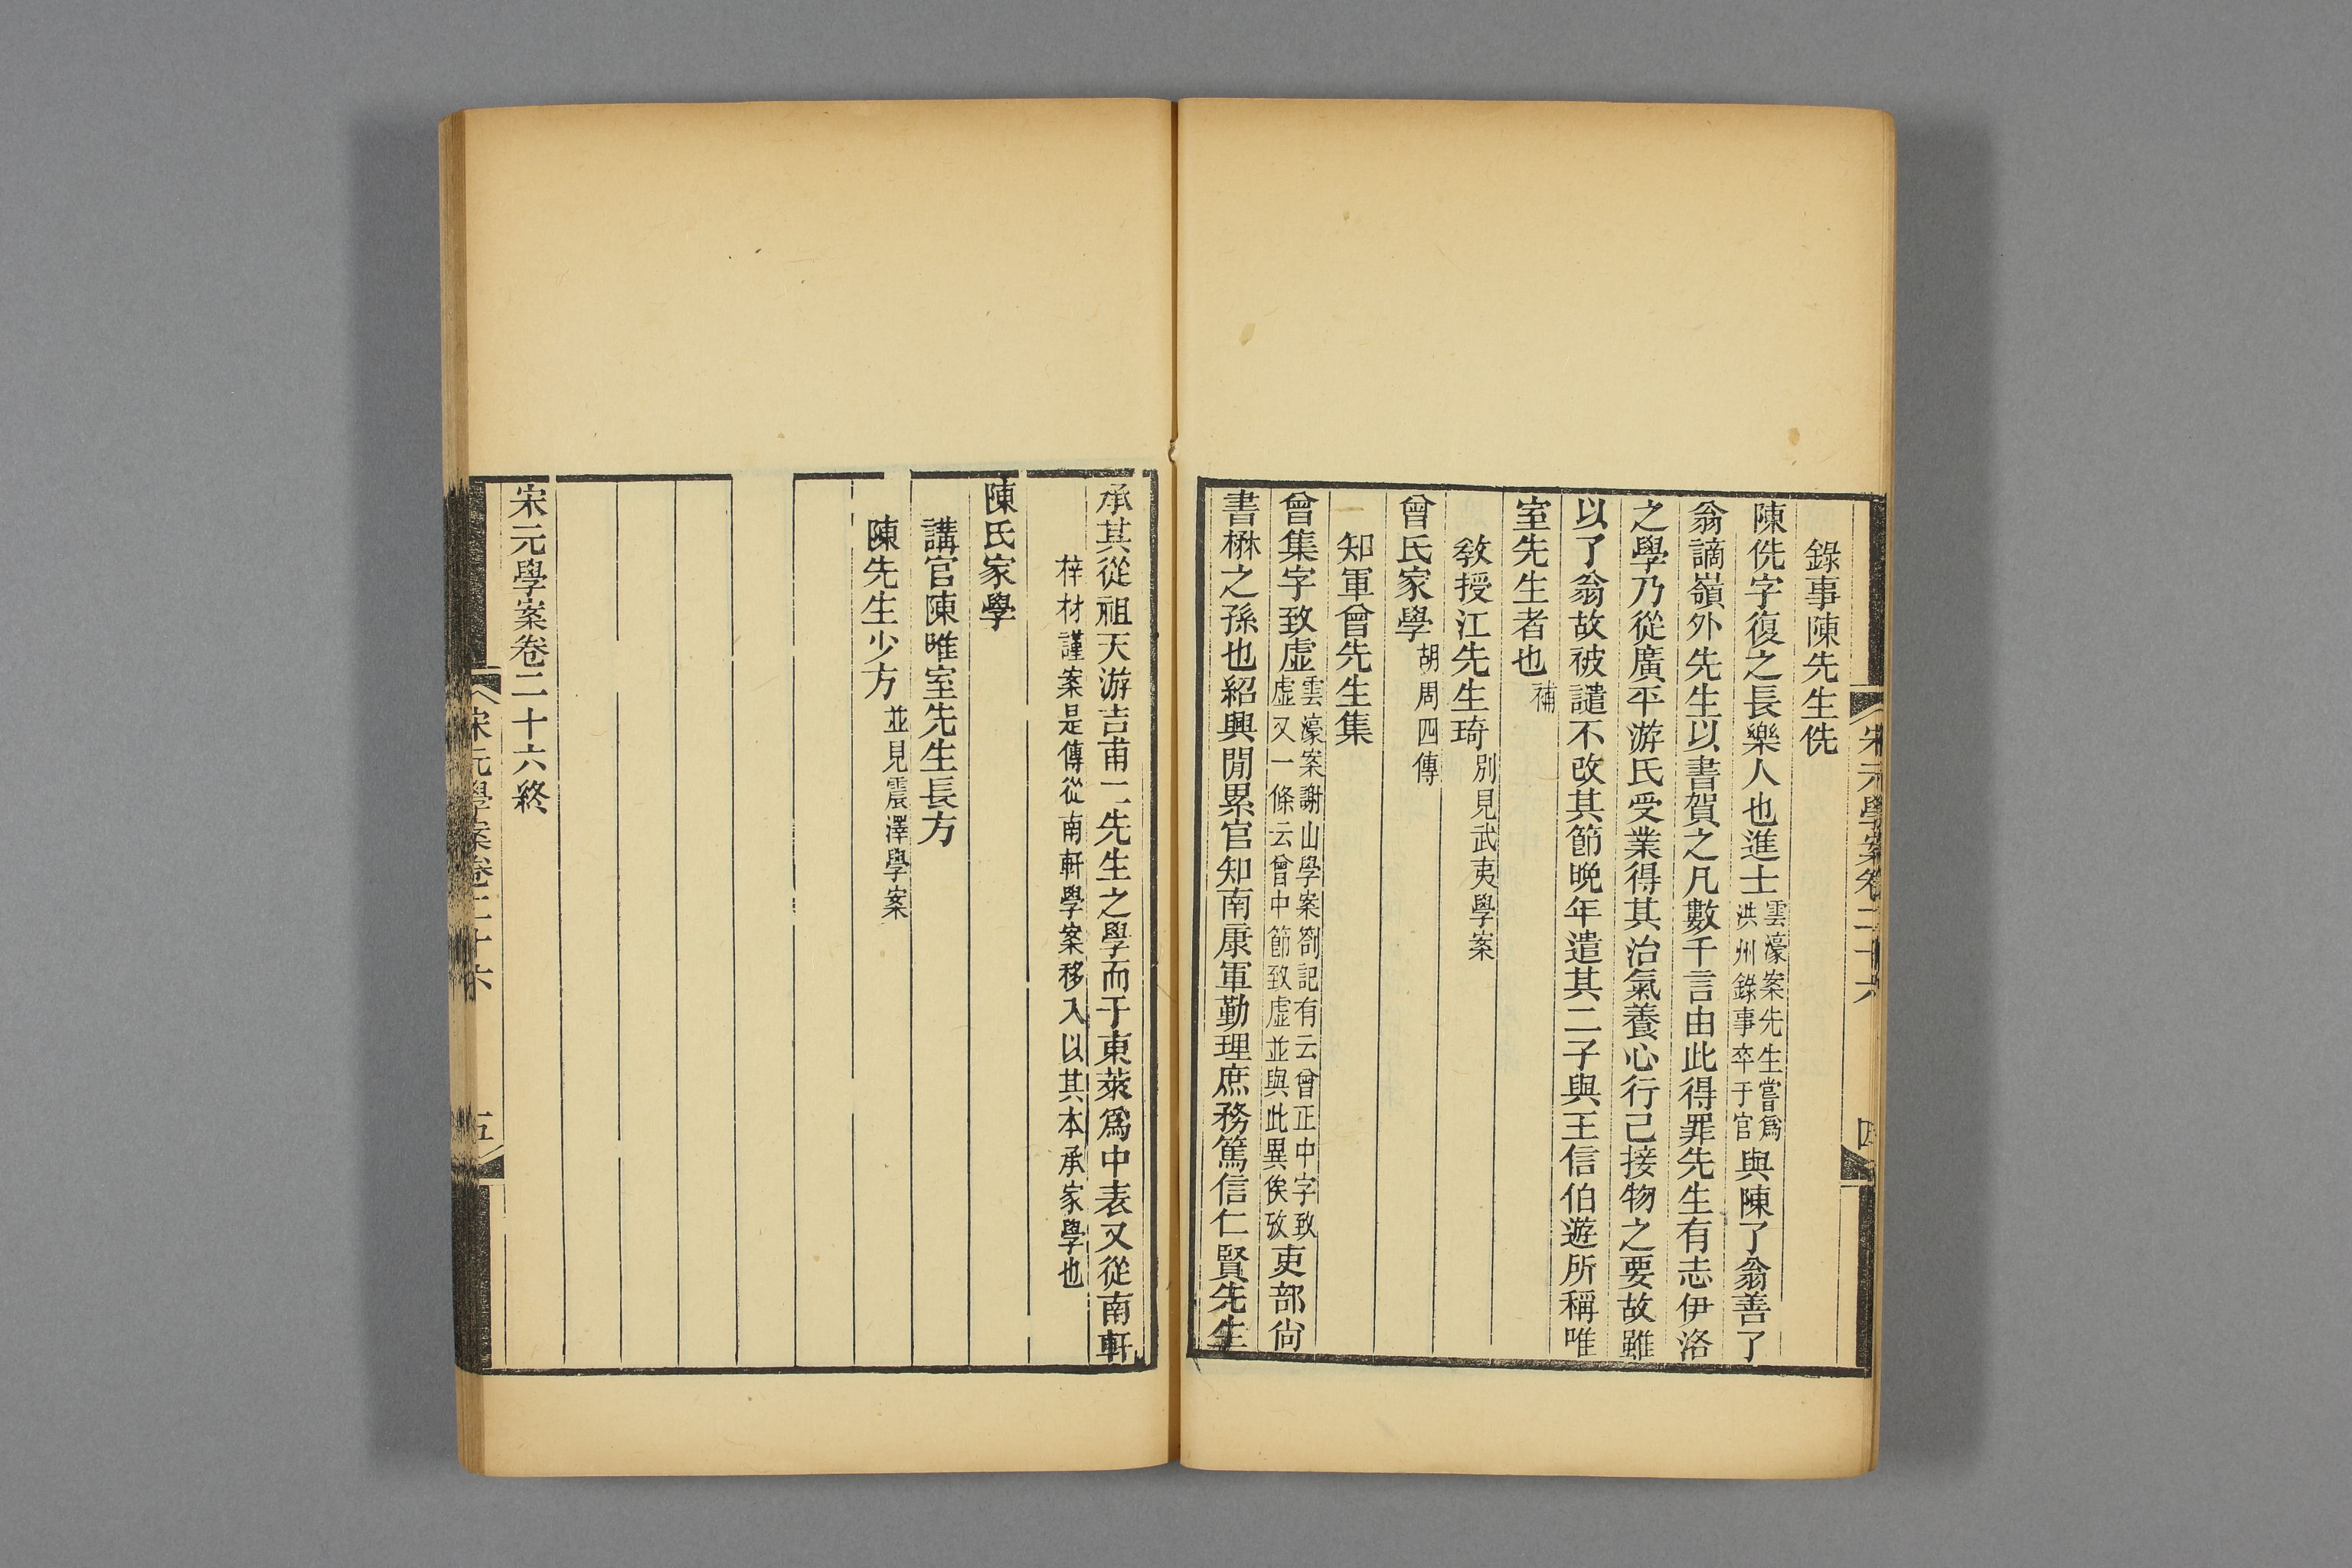 宋元學案卷二十六
四
錄事陳先生侁
陳侁字復之長樂人也進士雲濠案先生嘗爲洪州錄事卒于官與陳了翁善了
翁謫嶺外先生以書賀之凡數千言由此得罪先生有志伊洛
之學乃從廣平游氏受業得其治氣養心行己接物之要故雖
以了翁故被譴不改其節晚年遣其二子與王信伯遊所稱唯
室先生者也補
教授江先生琦別見武夷學案
曾氏家學胡周四傳
知軍曾先生集
曾集字致虛雲濠案謝山學案劄記有云曾正中字致虛又一條云曾中節致虛並與此異俟攷吏部尙
書楙之孫也紹興閒累官知南康軍勤理庶務篤信仁賢先生
承其從祖天游吉甫二先生之學而于東萊爲中表又從南軒
梓材謹案是傳從南軒學案移入以其本承家學也
陳氏家學
講官陳唯室先生長方
陳先生少方並見震澤學案
宋元學案卷二十六終
宋元學案卷二十六
五